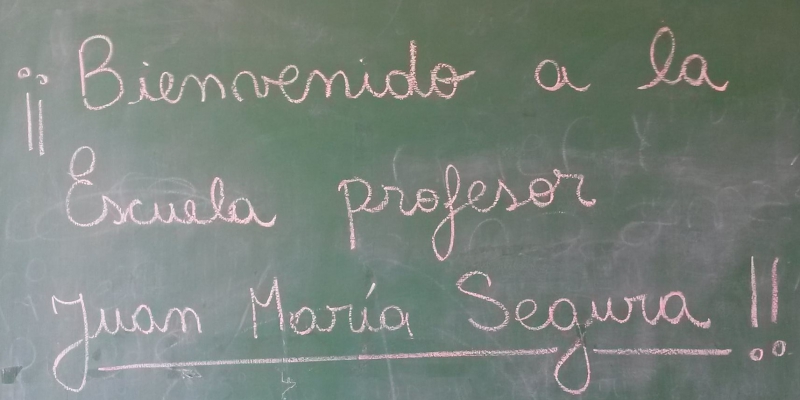 ¡¡Bienvenido a la
Escuela profesor
Juan María Segura!!